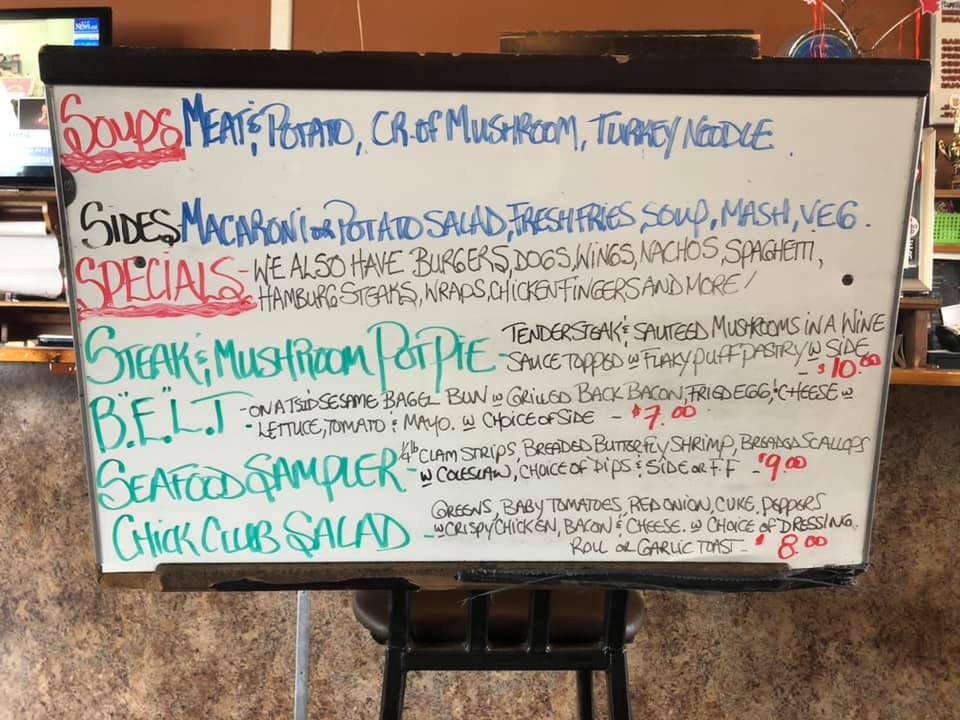 News
SOUPS MEAT & POTATO, CR. OF MUSHROOM, TURKEY NOODLE.
SIDES MACARONI OR POTATO SALAD, FRESH FRIES, SOUP, MASH, VEG.
SPECIALS - WE ALSO HAVE BURGERS, DOGS, WINGS, NACHOS, SPAGHETTI,
HAMBURG STEAKS, WRAPS, CHICKEN FINGERS AND MORE!
STEAK & MUSHROOM POT PIE - TENDER STEAK & SAUTEED MUSHROOMS IN A WINE
SAUCE TOPPED W FLAKY PUFF PASTRY W SIDE
- $10.00
B."E".L.T - ON A TSID SESAME BAGEL BUN W GRILLED BACK BACON, FRIED EGG, & CHEESE W
- LETTUCE, TOMATO & MAYO. W CHOICE OF SIDE - $7.00
SEAFOOD SAMPLER - 1/4 lb CLAM STRIPS, BREADED BUTTERFLY SHRIMP, BREADED SCALLOPS
W COLESLAW, CHOICE OF DIPS & SIDE OR F.F - $9.00
CHICK CLUB SALAD - GREENS, BABY TOMATOES, RED ONION, CUKE, PEPPERS
W CRISPY CHICKEN, BACON & CHEESE. W CHOICE OF DRESSING.
ROLL OR GARLIC TOAST - $8.00